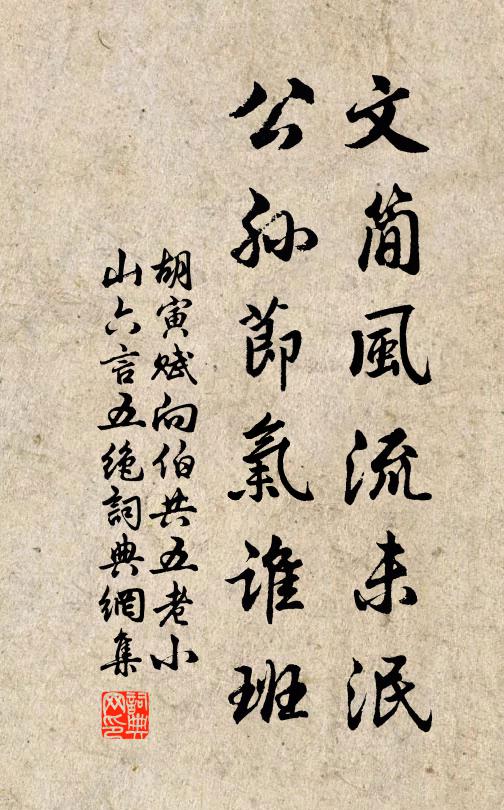 文簡風流未泯
公孫節氣誰班
胡寅賦向伯共五老小
山六言五絶詞典網集
詞典
网印